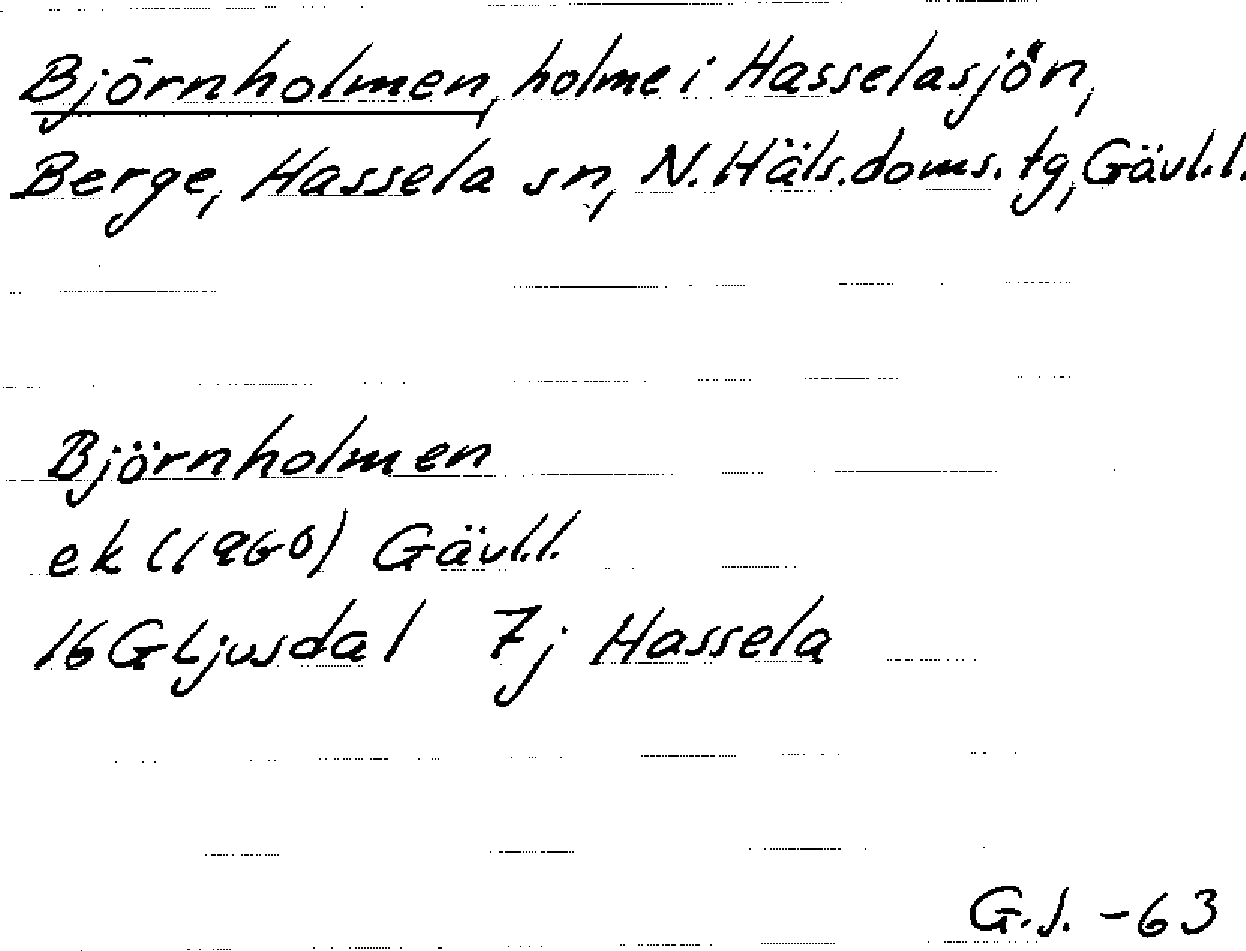 Björnholmen, holme i Hasselasjön,
Berge, Hassela sn, N. Häls. doms. tg, Gävl.l.
Björnholmen
ek (1960) Gävl.l.
16G Ljusdal 7j Hassela
G.J. -63